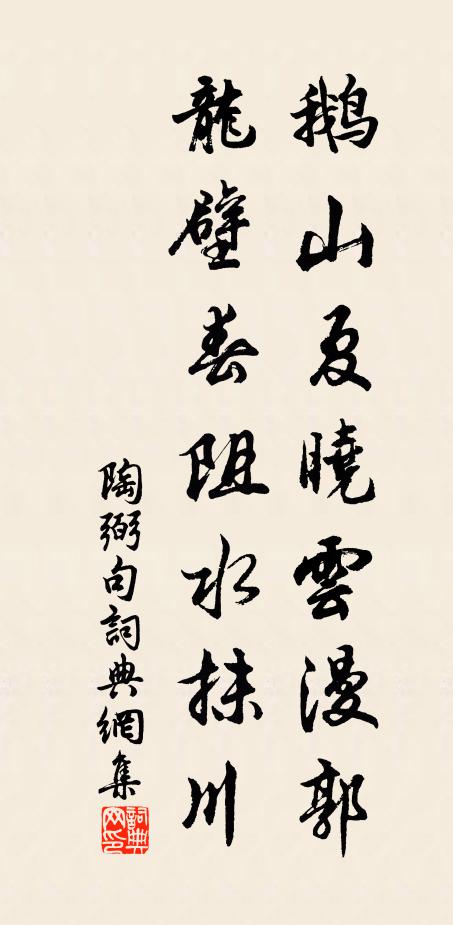 鵝山夏曉雲漫郭
龍壁春阻水抹川
陶弼句詞典網集
詞典網印